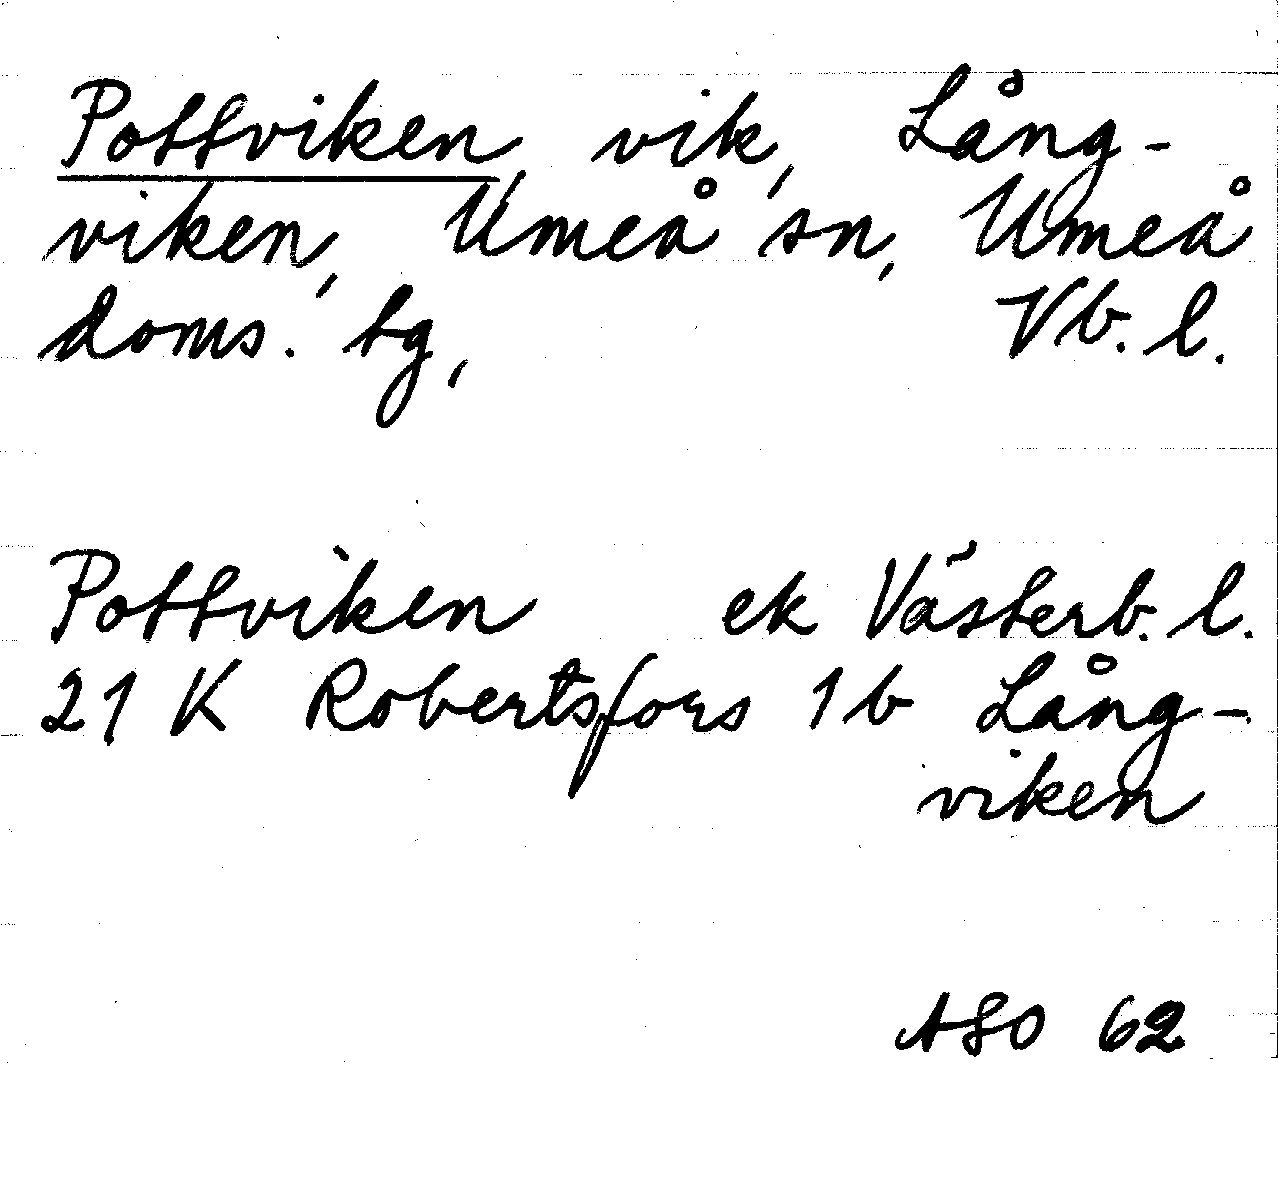 Pottviken, vik, Lång-
viken, Umeå sn, Umeå
doms. tg, Vb. l.
Pottviken ek Västerb. l.
21 K Robertsfors 1 b Lång-
viken
ASO 62